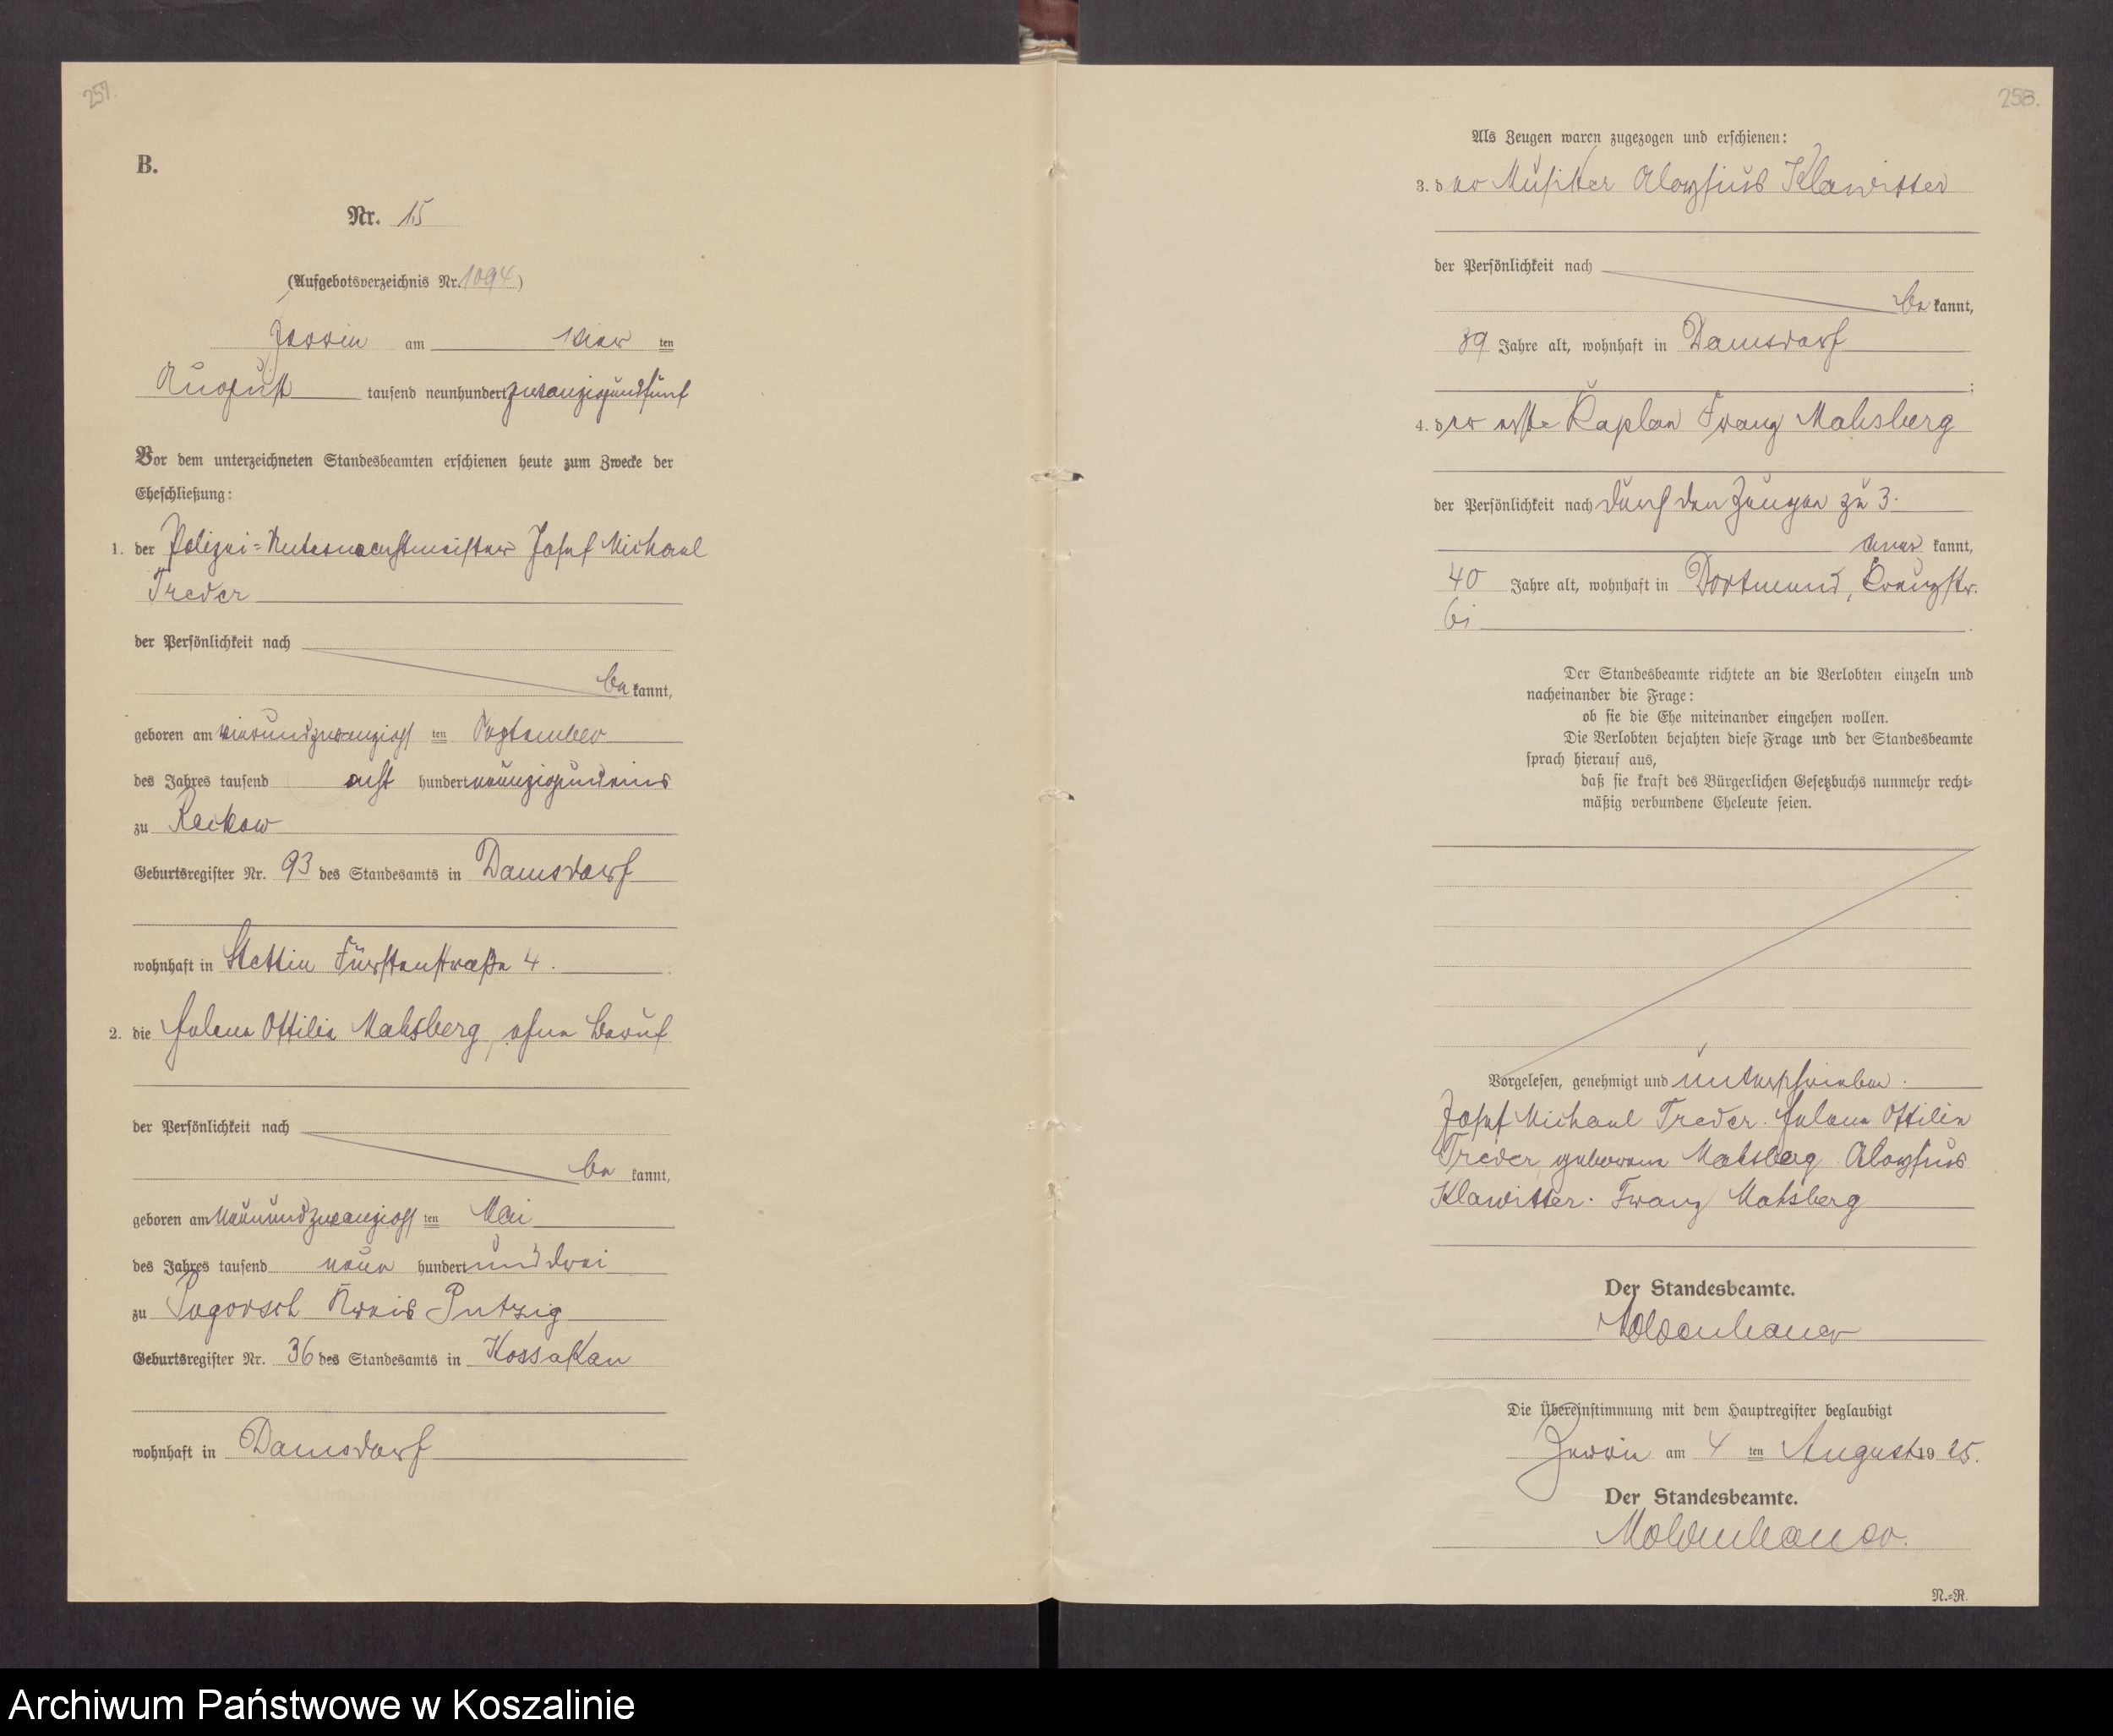 257.
B.
Nr. 15
(Aufgebotsverzeichnis Nr. 1094)
am vier ten
August tausend neunhundert zwanzigundfünf
Vor dem unterzeichneten Standesbeamten erschienen heute zum Zwecke der
Eheschließung:
1. der Polizei-Unterwachtmeister Josef Michael
Treder
der Persönlichkeit nach
be kannt,
geboren am vierundzwanzigst ten September
des Jahres tausend acht hundert neunzigundeins
zu Reckow
Geburtsregister Nr. 93 des Standesamts in Damsdorf
wohnhaft in Stettin Fürstenstraße 4.
2. die Helene Ottilie Mahsberg, ohne Beruf
der Persönlichkeit nach
be kannt,
geboren am neunundzwanzigst ten Mai
des Jahres tausend neun hundert und drei
zu Pogorsch Kreis Putzig
Geburtsregister Nr. 36 des Standesamts in Kossakau
wohnhaft in Damsdorf
258.
Als Zeugen waren zugezogen und erschienen:
3. der Musiker Aloysius Klawitter
der Persönlichkeit nach
be kannt,
39 Jahre alt, wohnhaft in Damsdorf
;
4. der erste Kaplan Franz Mahsberg
der Persönlichkeit nach durch den Zeugen zu 3.
aner kannt,
40 Jahre alt, wohnhaft in Dortmund, Kreuzstr.
61
Der Standesbeamte richtete an die Verlobten einzeln und
nacheinander die Frage:
ob sie die Ehe miteinander eingehen wollen.
Die Verlobten bejahten diese Frage und der Standesbeamte
sprach hierauf aus,
daß sie kraft des Bürgerlichen Gesetzbuchs nunmehr recht-
mäßig verbundene Eheleute seien.
Vorgelesen, genehmigt und unterschrieben.
Josef Michael Treder. Helene Ottilie
Treder geborene Mahsberg Aloysius
Klawitter. Franz Mahsberg
Der Standesbeamte.
Moldenhauer
Die Übereinstimmung mit dem Hauptregister beglaubigt
am 4 ten August 19 25.
Der Standesbeamte.
Moldenhauer.
N.-R.
Archiwum Państwowe w Koszalinie